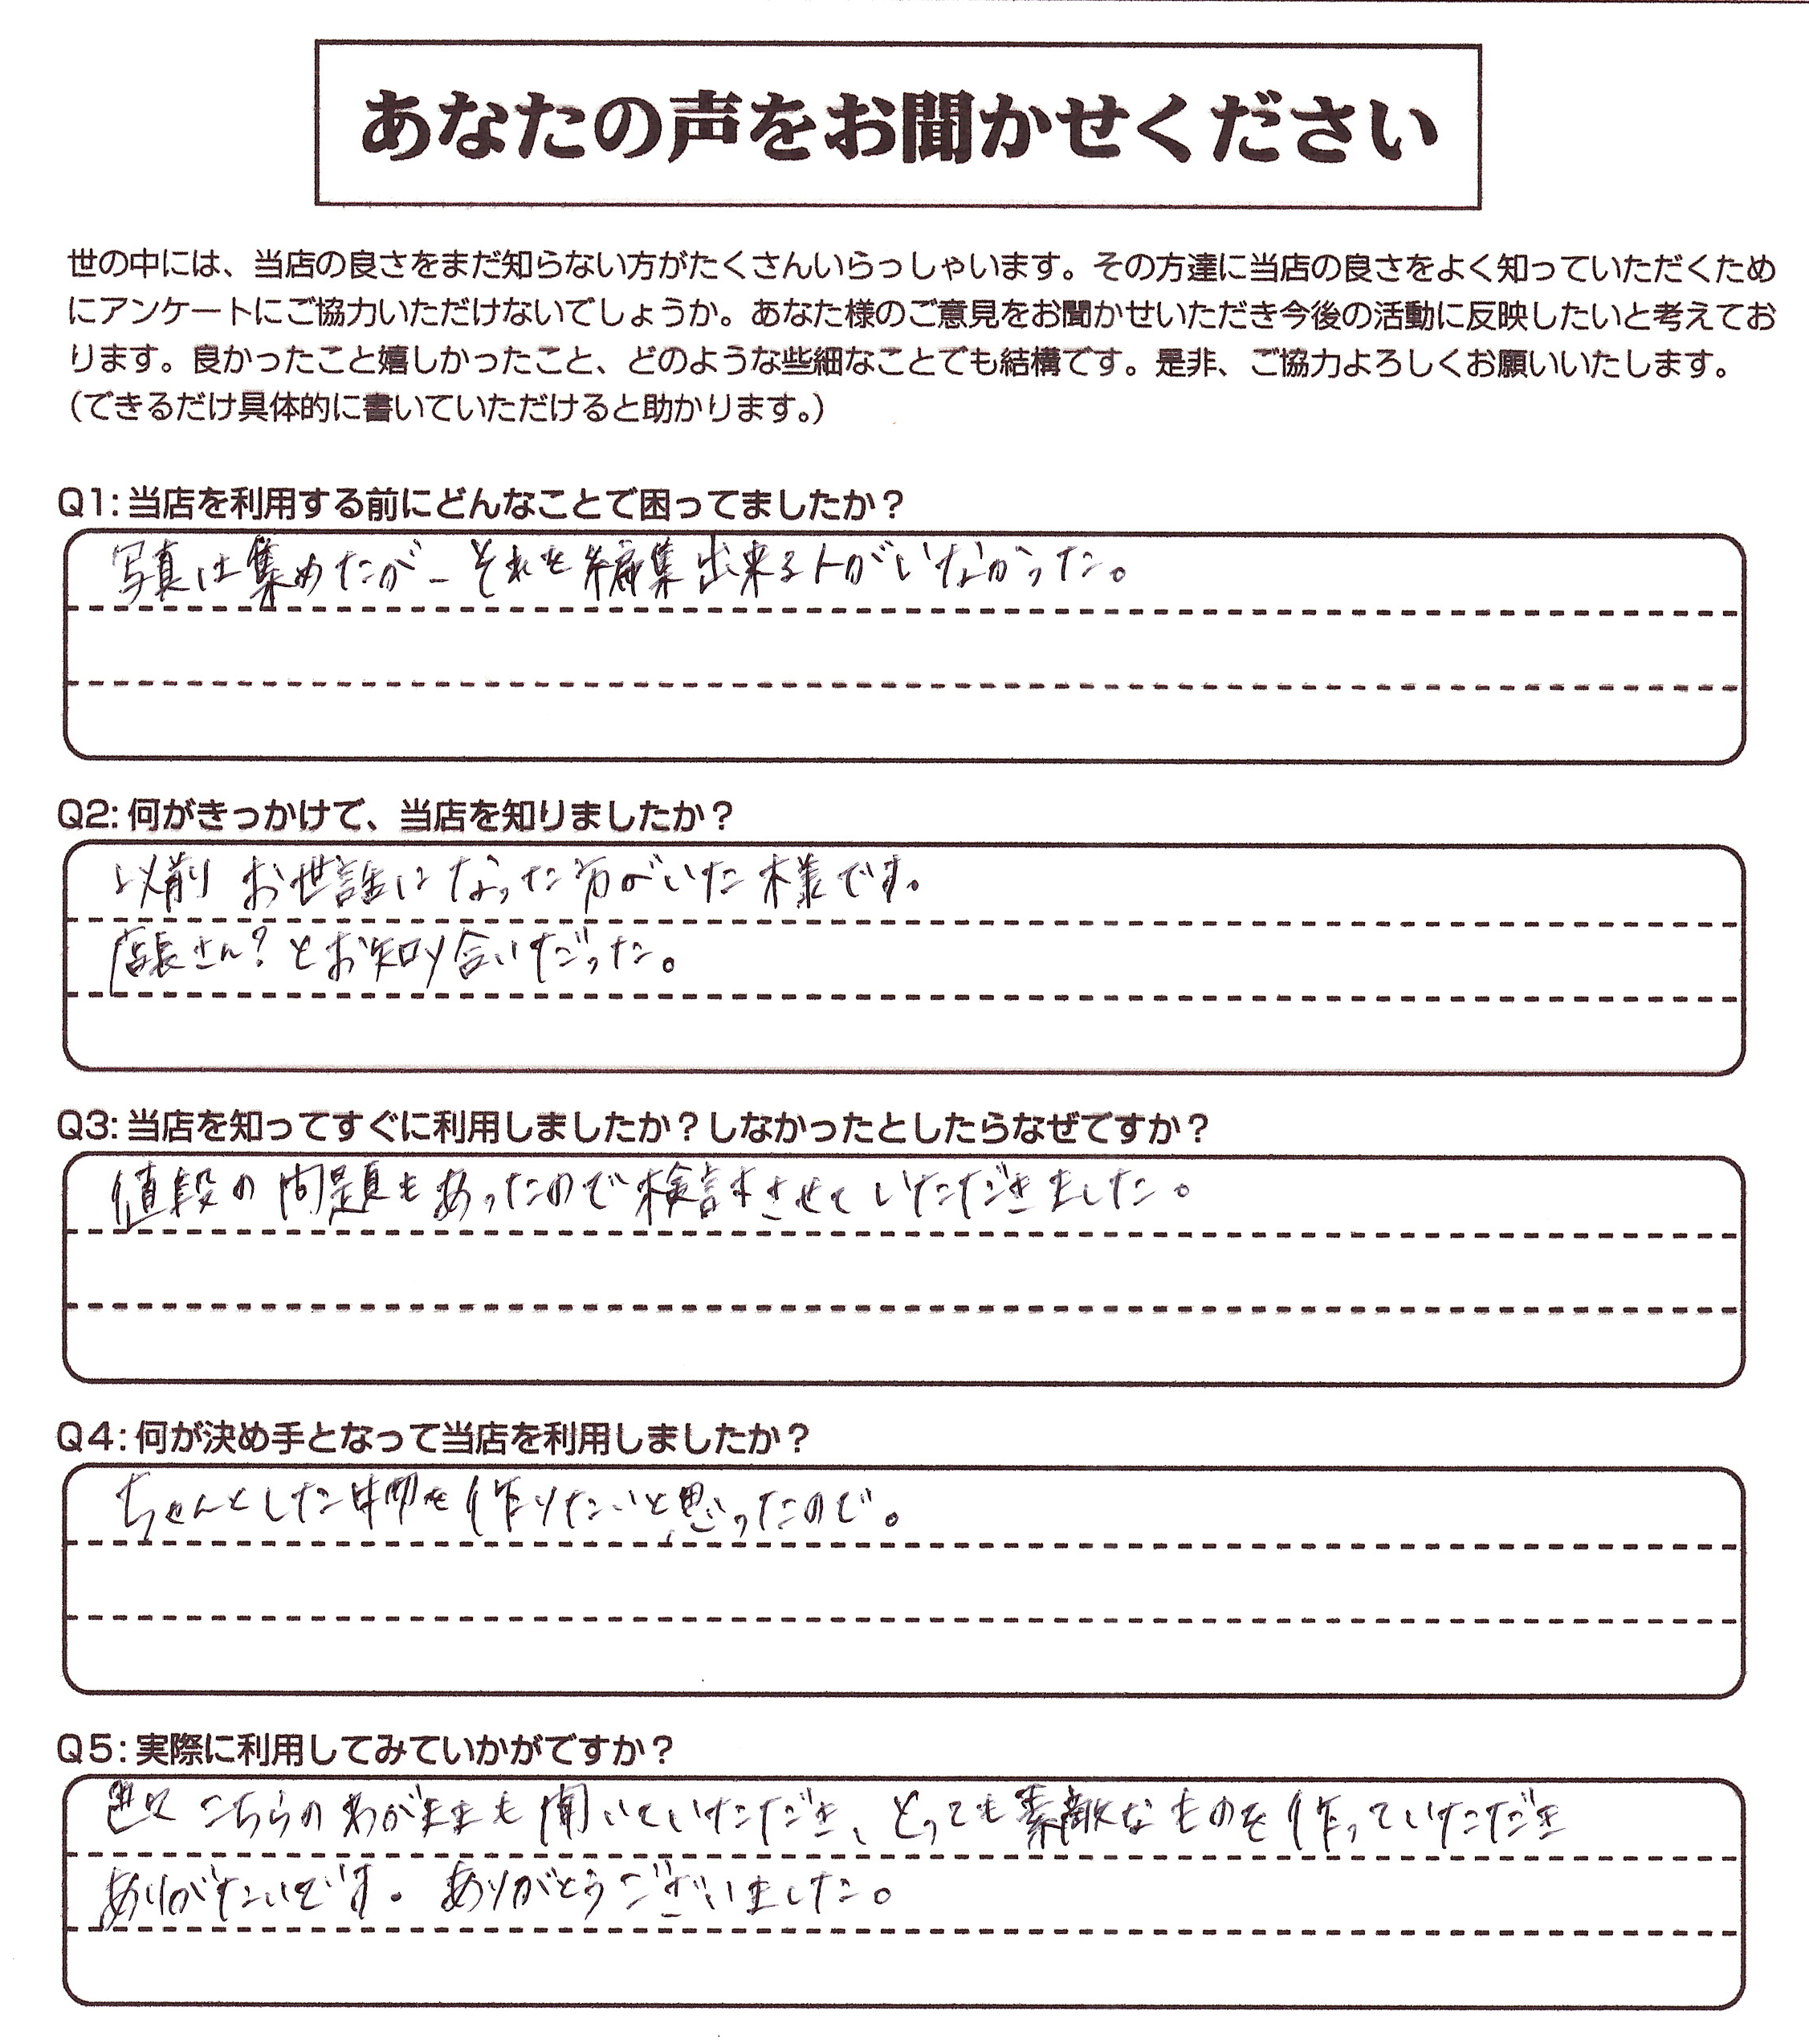 あなたの声をお聞かせください
世の中には、当店の良さをまだ知らない方がたくさんいらっしゃいます。その方達に当店の良さをよく知っていただくため
にアンケートにご協力いただけないでしょうか。あなた様のご意見をお聞かせいただき今後の活動に反映したいと考えてお
ります。良かったこと嬉しかったこと、どのような些細なことでも結構です。是非、ご協力よろしくお願いいたします。
（できるだけ具体的に書いていただけると助かります。）
Q1:当店を利用する前にどんなことで困ってましたか？
写真は集めたが、それを編集出来る人がいなかった。
Q2:何がきっかけで、当店を知りましたか？
以前 お世話になった方がいた様です。
店長さん？とお知り合いだった。
Q3:当店を知ってすぐに利用しましたか？しなかったとしたらなぜですか？
値段の問題もあったので検討させていただきました。
Q4:何が決め手となって当店を利用しましたか？
ちゃんとした物を作りたいと思ったので。
Q5:実際に利用してみていかがですか？
こちらのわがままも聞いていただき、とっても素敵なものを作っていただき
ありがたいです。ありがとうございました。